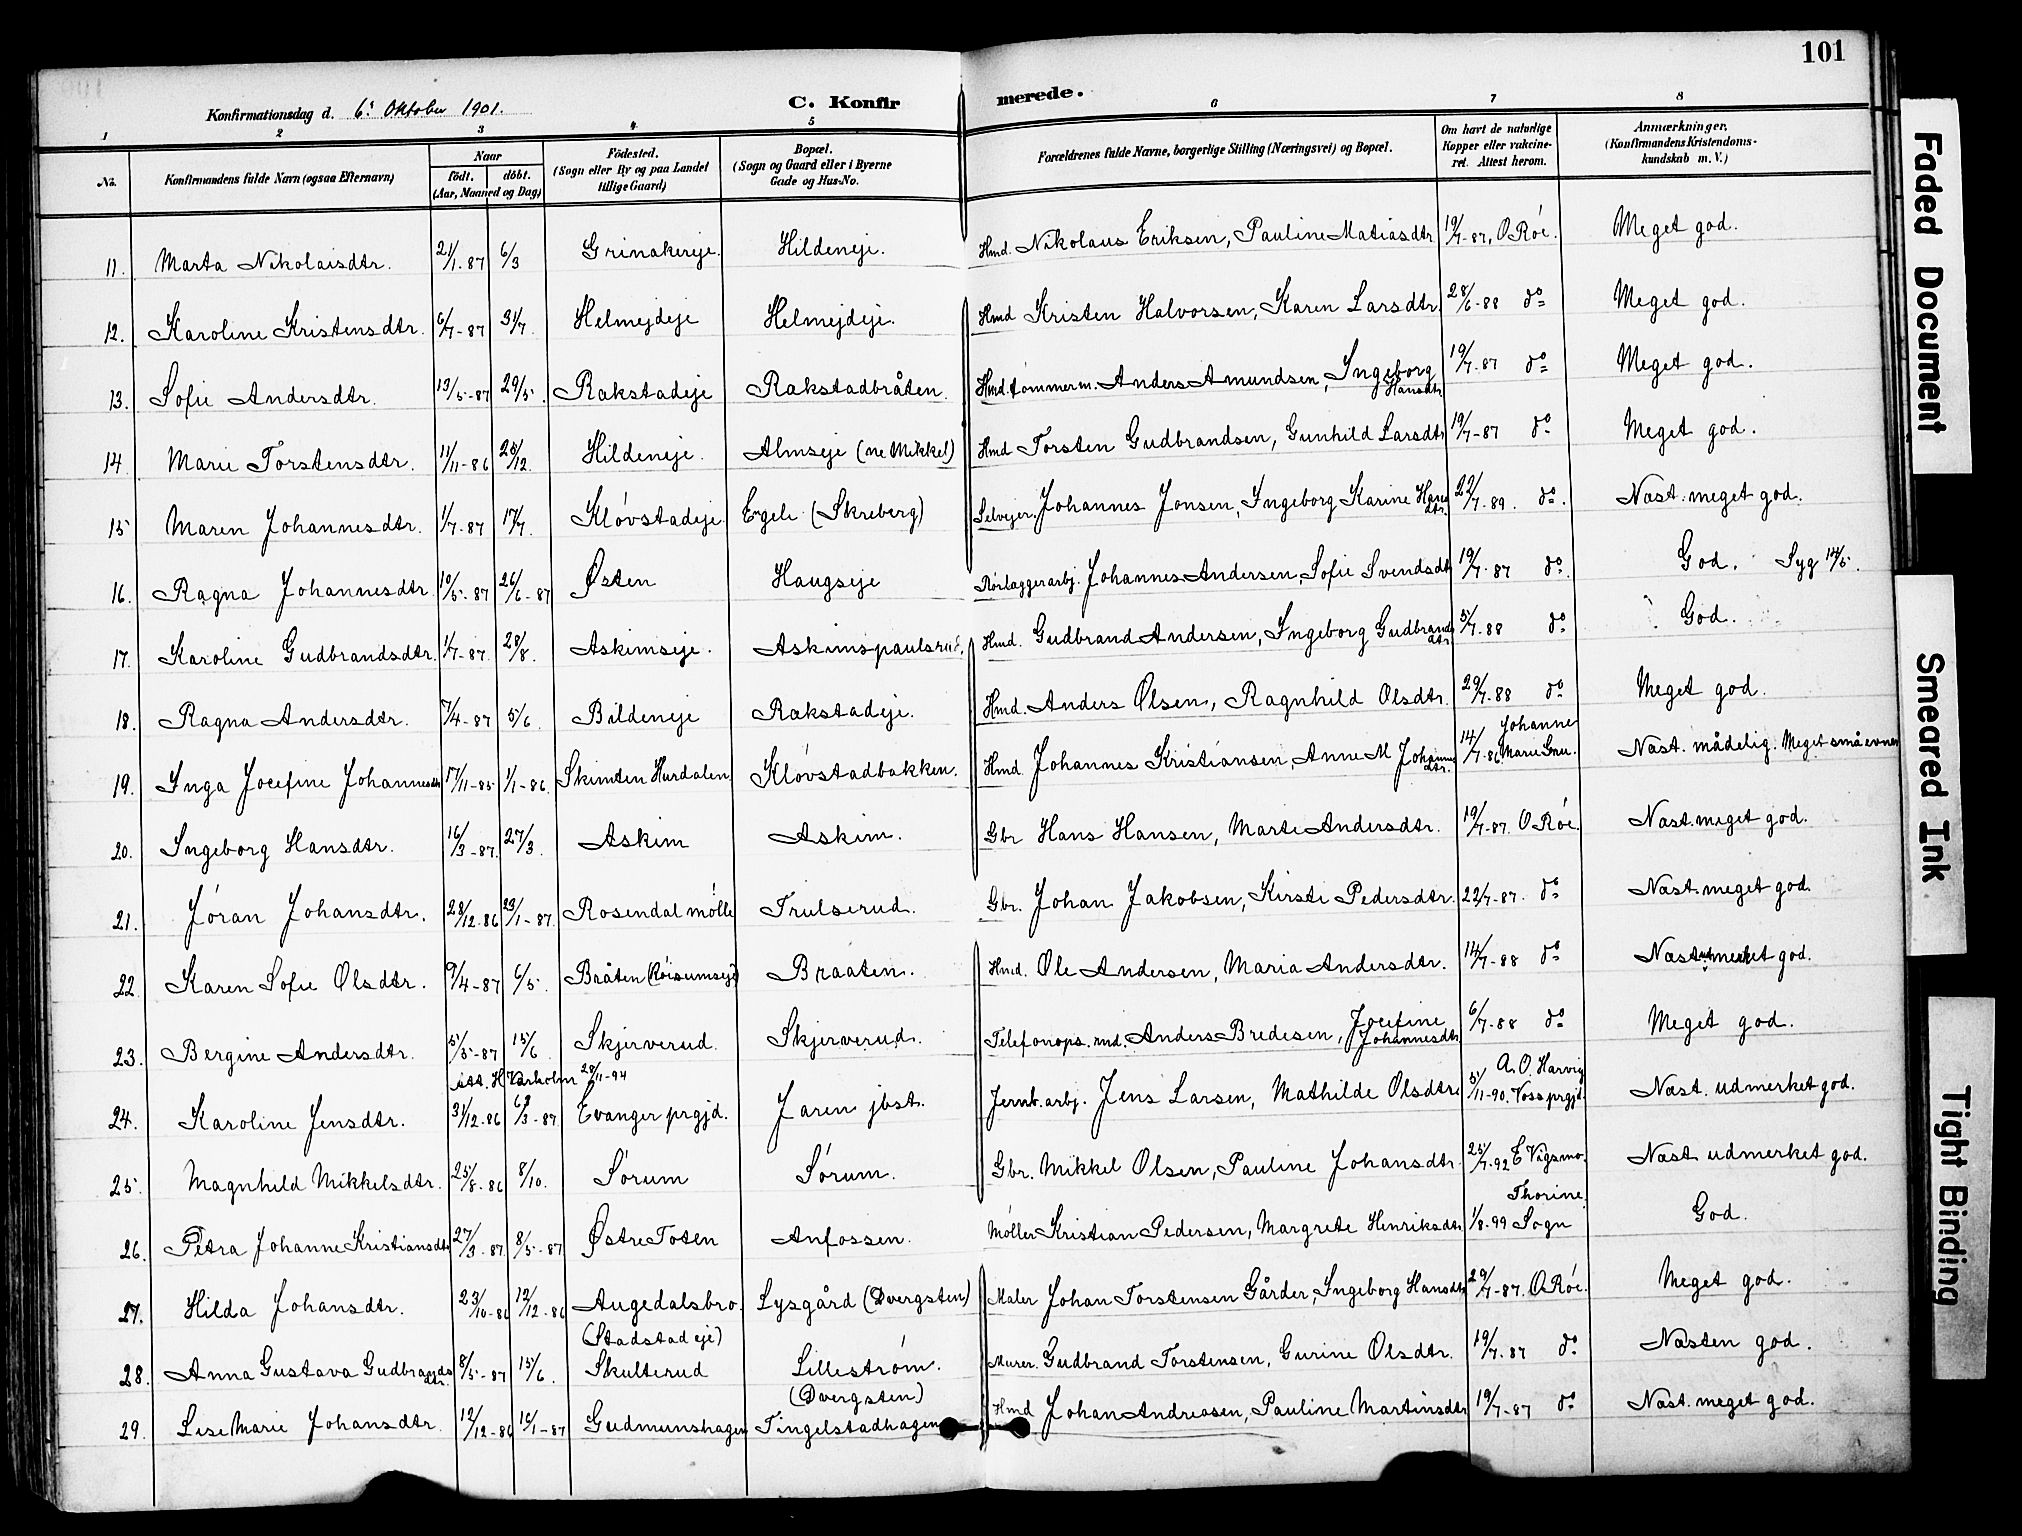 101
Konfirmationsdag d. 6: Oktober 1901. C. Konfir merede.
1 2 3 4 5 6 7 8
No. Konfirmandens fulde Navn (ogsaa Efternavn) Naar født. døbt. (Aar, Maaned og Dag) Fødested. (Sogn eller By og paa Landet tillige Gaard) Bopæl. (Sogn og Gaard eller i Byerne Gade og Hus-No. Forældrenes fulde Navne, borgerlige Stilling (Næringsvei) og Bopæl. Om havt de naturlige Kopper eller vakcineret. Attest herom. Anmærkninger. (Konfirmandens Kristendomskundskab m. V.)
11. Marta Nikolaisdtr. 21/1-87 6/3 Grinakereje. Hildeneje. Hmd. Nikolaus Eriksen, Pauline Matiasdtr. 19/7-87, O Röe. Meget god.
12. Karoline Kristensdtr. 6/7-87 31/7. Helmejdeje Helmejdeje. Hmd Kristen Halvorsen, Karen Larsdtr. 28/6-88 do Meget god.
13. Sofie Andersdtr. 13/5-87 29/5. Rakstadeje Rakstadbråten. Hmd. tømmerm. Anders Amundsen, Ingeborg Hansdtr. 19/7-87 do Meget god.
14. Marie Torstensdtr. 11/11-86 26/12. Hildeneje. Almseje (ne Mikkel) Hmd Torsten Gudbrandsen, Gunhild Larsdtr 19/7-87 do Meget god.
15 Maren Johannesdtr. 1/7-87 17/7. Kløvstadeje Ergele (Skreberg) Selvejer. Johannes Jonsen, Ingeborg Karine Hansdtr. 22/7-89. do. Næst. meget god.
16. Ragna Johannesdtr. 10/5-87 26/6-87 Østen Haugseje Rørlæggerarbj. Johannes Andersen, Sofie Svendsdtr 19/7-87 do. God. Syg 14/5.
17. Karoline Gudbrandsdtr. 1/7-87. 28/8. Askimseje. Askimspaulsrud. Hmd. Gudbrand Andersen, Ingeborg Gudbrandsdtr. 5/7-88 do God.
18. Ragna Andersdtr. 7/4-87 5/6. Bildeneje Rakstadeje. Hmd. Anders Olsen, Ragnhild Olsdtr. 29/7-88 do Meget god.
19. Inga Jocefine Johannesdtr 17/11-85 1/1-86. Skimten Hurdalen Kløvstadbakken. Hmd. Johannes Kristiansen, Anne M Johannesdtr. 14/7-86 Johanne Marie Gru. Næst. mådelig. Meget små evner
20. Ingeborg Hansdtr. 16/3-87. 27/3. Askim Askim. Gbr Hans Hansen, Marte Andersdtr. 19/7-87. O Röe. Næst. meget god.
21. Jøran Johansdtr. 28/12-86 23/1-87. Rosendal mølle Trulserud. Gbr. Johan Jakobsen, Kirsti Pedersdtr. 22/7-87. do Næst. meget god.
22. Karen Sofie Olsdtr. 9/4-87 6/5. Bråten (Røisumseje) Braaten. Hmd. Ole Andersen, Maria Andersdtr. 14/7-88 do Næst utmerket god.
23. Bergine Andersdtr. 5/5-87 15/6. Skjerverud. Skjerverud. Telefonops. md. Anders Bredesen, Jocefine Johannesdtr 6/7-88 do Meget god.
att. H Varholm 28/11-94
24. Karoline Jensdtr. 31/12-86 6/3-87. Evanger prgjd. Jaren jbst. Jernb. arbj. Jens Larsen, Mathilde Olsdtr. 5/11-90. A. O. Harvig Voss prgjd. Næst. udmerket god.
25. Magnhild Mikkelsdtr. 25/8-86 8/10. Sørum Sørum. Gbr. Mikkel Olsen, Pauline Johansdtr. 25/7-92 E Vigsmo. Næst udmerket god.
26. Petra Johanne Kristiansdtr 27/3-87. 8/5-87 Østre Toten Anfossen. Møller Kristian Pedersen, Margrete Henriksdtr 1/8-99 Thorine Sogn God.
27. Hilda Johansdtr. 23/10-86 12/12-86 Augedalsbro. Lysgård (Dvergsten) Maler Johan Torstensen Gårder, Ingeborg Hansdtr 29/7-87. O Röe. Meget god.
28. Anna Gustava Gudbrandsdtr. 8/5-87 15/6. (Stadstadeje) Skulterud Lillestrøm. Murer. Gudbrand Torstensen, Gurine Olsdtr. 19/7-87 do Næsten god.
29. Lise Marie Johansdtr. 12/12-86 16/1-87 Gudmunshagen (Dvergsten) Tingelstadhagen Hmd Johan Andreasen, Pauline Martinsdtr 19/7-87 do Næst. meget god.
Faded Document
Smeared Ink
Tight Binding